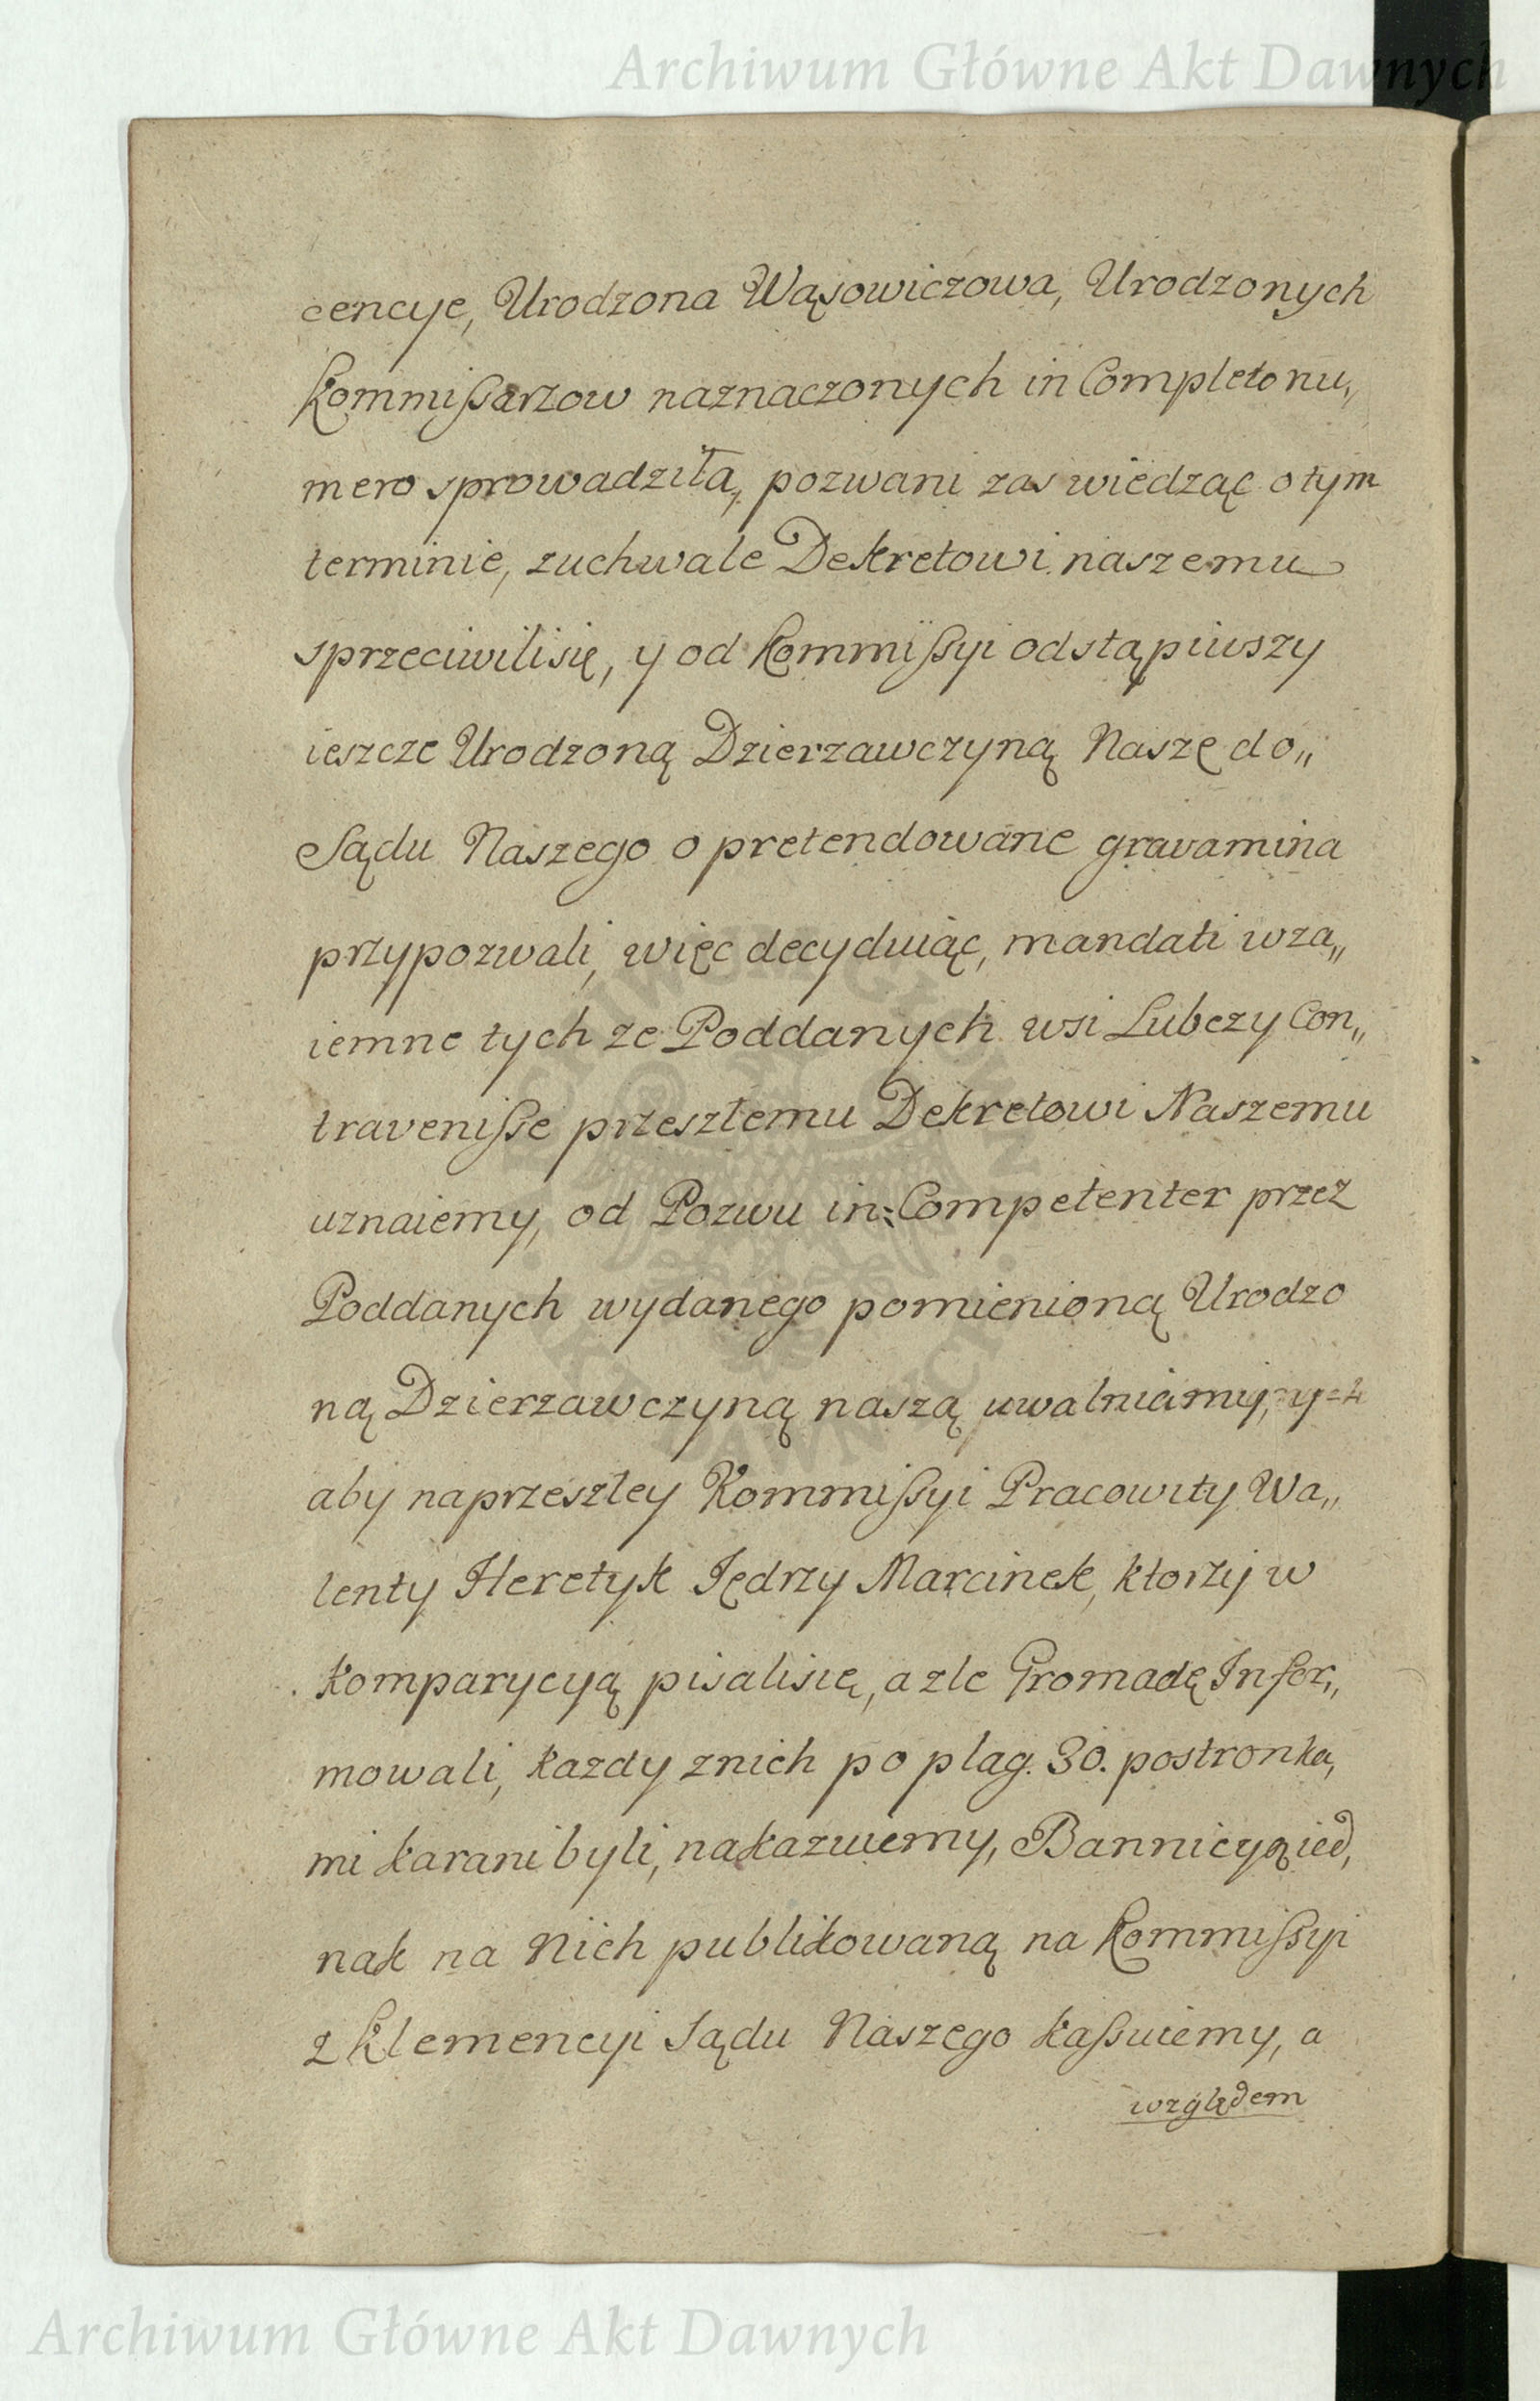 Archiwum Główne Akt Dawnych
cencye, Urodzona Wąsowiczowa, Urodzonych
Kommißarzow naznaczonych in Completo nu,,
mero sprowadziła, pozwani zas wiedząc o tym
terminie, zuchwale Dekretowi naszemu
sprzeciwili się, y od Kommißyi odstąpiwszy
ieszcze Urodzoną Dzierzawczyną Naszę do,,
Sądu Naszego o pretendowane gravamina
przypozwali, więc decyduiąc, mandati wza,,
iemne tych ze Poddanych wsi Lubczy Con,,
traveniße przeszłemu Dekretowi Naszemu
uznaiemy, od Pozwu in: Competenter przez
Poddanych wydanego pomienioną Urodzo
ną Dzierzawczyną naszą uwalniamy, y
aby na przeszłey Kommißyi Pracowity Wa,,
lenty Heretyk Jędrzy Marcinek, ktorzy w
komparycyą pisali się, a zle Gromadę Infor,,
mowali, kazdy z nich po plag. 30. postronka,
mi karani byli, nakazuiemy, Bannicyą ied,
nak na Nich publikowaną na Kommißyi
z Klemencyi Sądu Naszego kaßuiemy, a
względem
Archiwum Główne Akt Dawnych